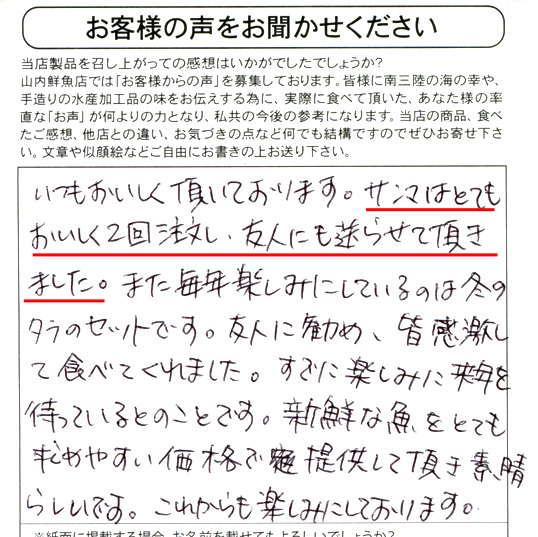 お客様の声をお聞かせください
当店製品を召し上がっての感想はいかがでしたでしょうか?
山内鮮魚店では「お客様からの声」を募集しております。皆様に南三陸の海の幸や、
手造りの水産加工品の味をお伝えする為に、実際に食べて頂いた、あなた様の率
直な「お声」が何よりの力となり、私共の今後の参考になります。当店の商品、食べ
たご感想、他店との違い、お気づきの点など何でも結構ですのでぜひお寄せ下さ
い。文章や似顔絵などご自由にお書きの上お送り下さい。
いつもおいしく頂いております。サンマはとても
おいしく2回注文し、友人にも送らせて頂き
ました。また毎年楽しみにしているのは冬の
タラのセットです。友人に勧め、皆感激し
て食べてくれました。すでに楽しみに来年を
待っているとのことです。新鮮な魚をとても
求めやすい価格で提供して頂き素晴
らしいです。これからも楽しみにしております。
※紙面に掲載する場合、お名前を載せてもよろしいでしょうか?